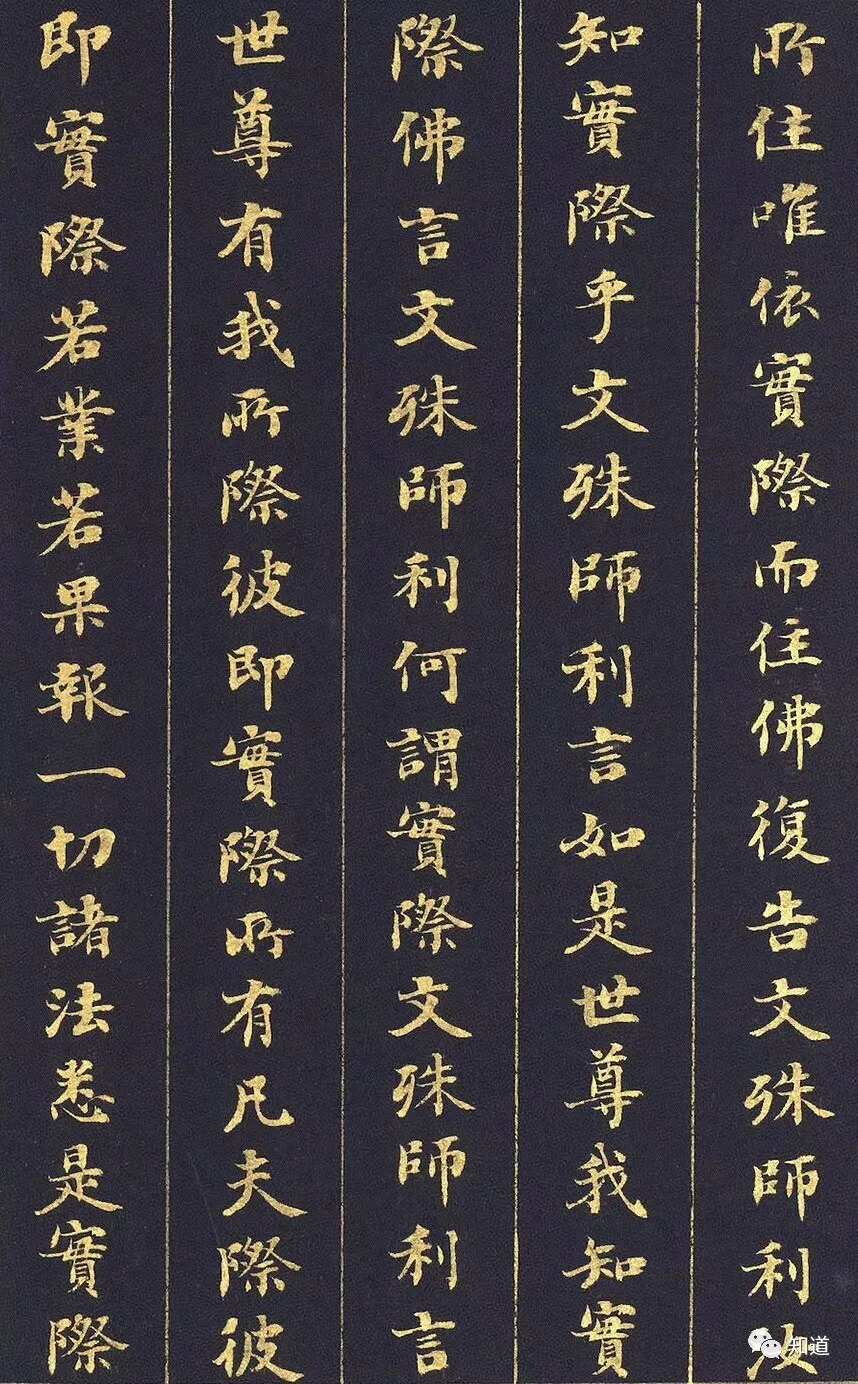 所住唯依實際而住佛復告文殊師利汝
知實際乎文殊師利言如是世尊我知實
際佛言文殊師利何謂實際文殊師利言
世尊有我所際彼即實際所有凡夫際彼
即實際若業若果報一切諸法悉是實際
知道